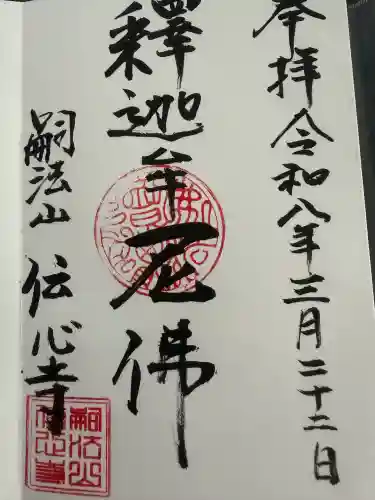 奉拝 令和八年三月二十二日
釋迦牟尼佛
嗣法山 伝心寺
嗣法山伝心寺